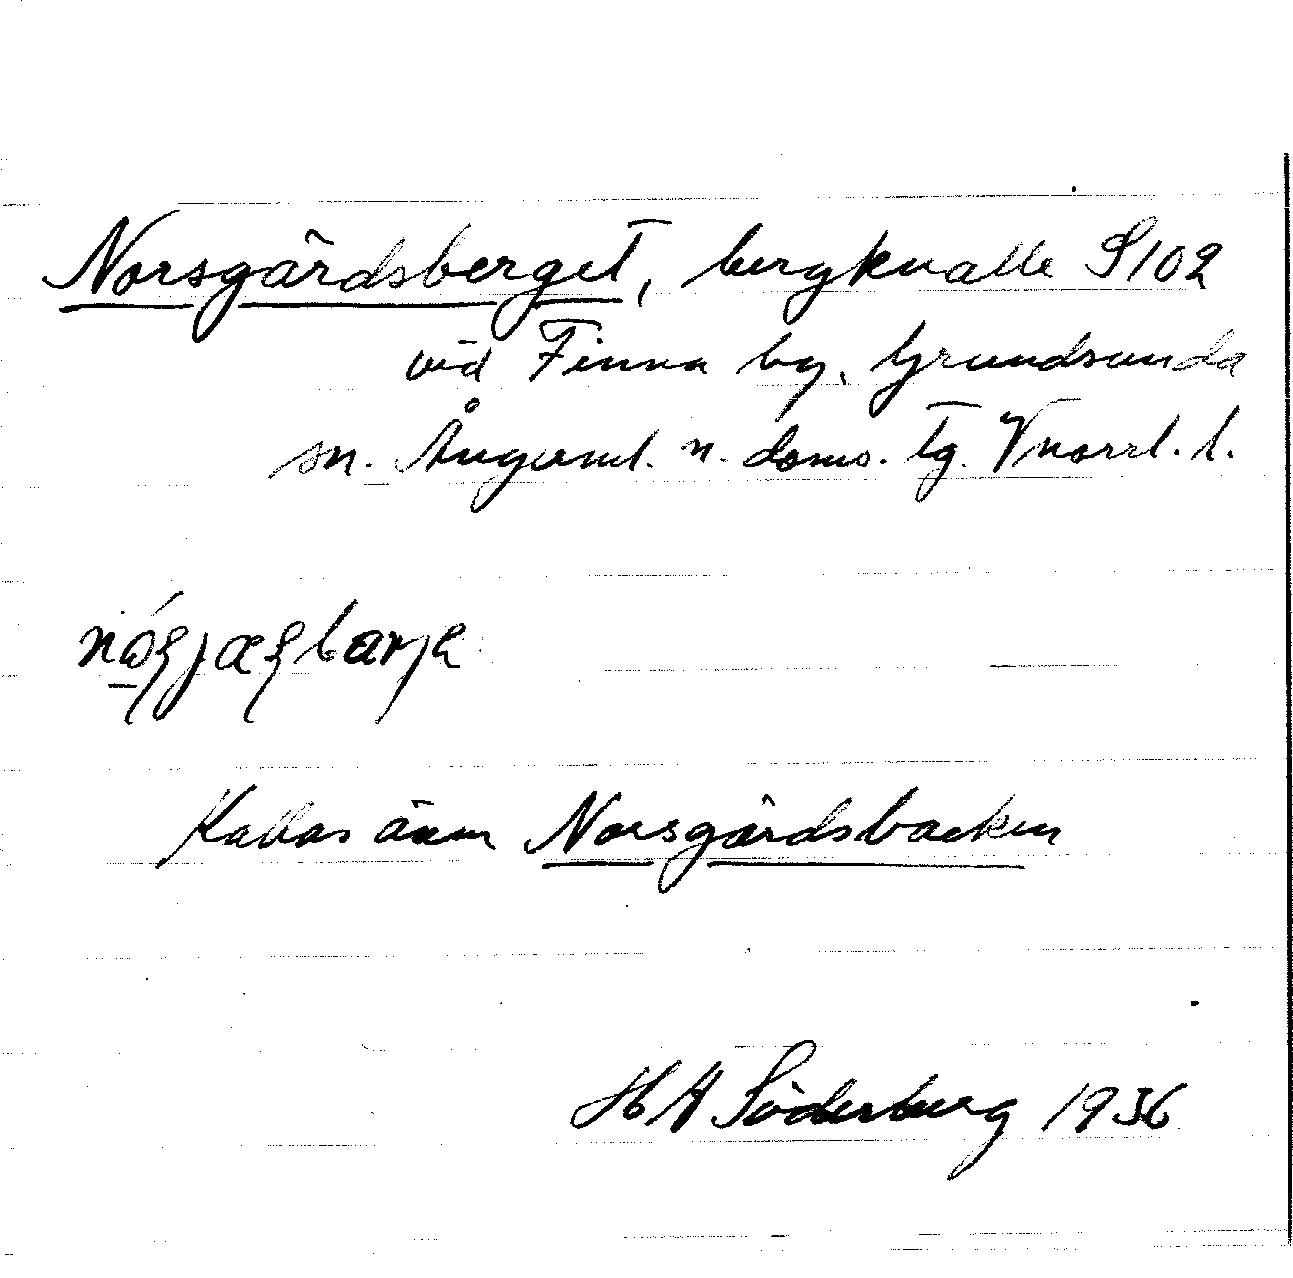 Norsgårdsberget, bergknalle S102
vid Finna by, Grundsunda
sn. Ångerml. n. doms. tg. Vnorrl. l.
Kallas även Norsgårdsbacken
HA Söderberg 1936